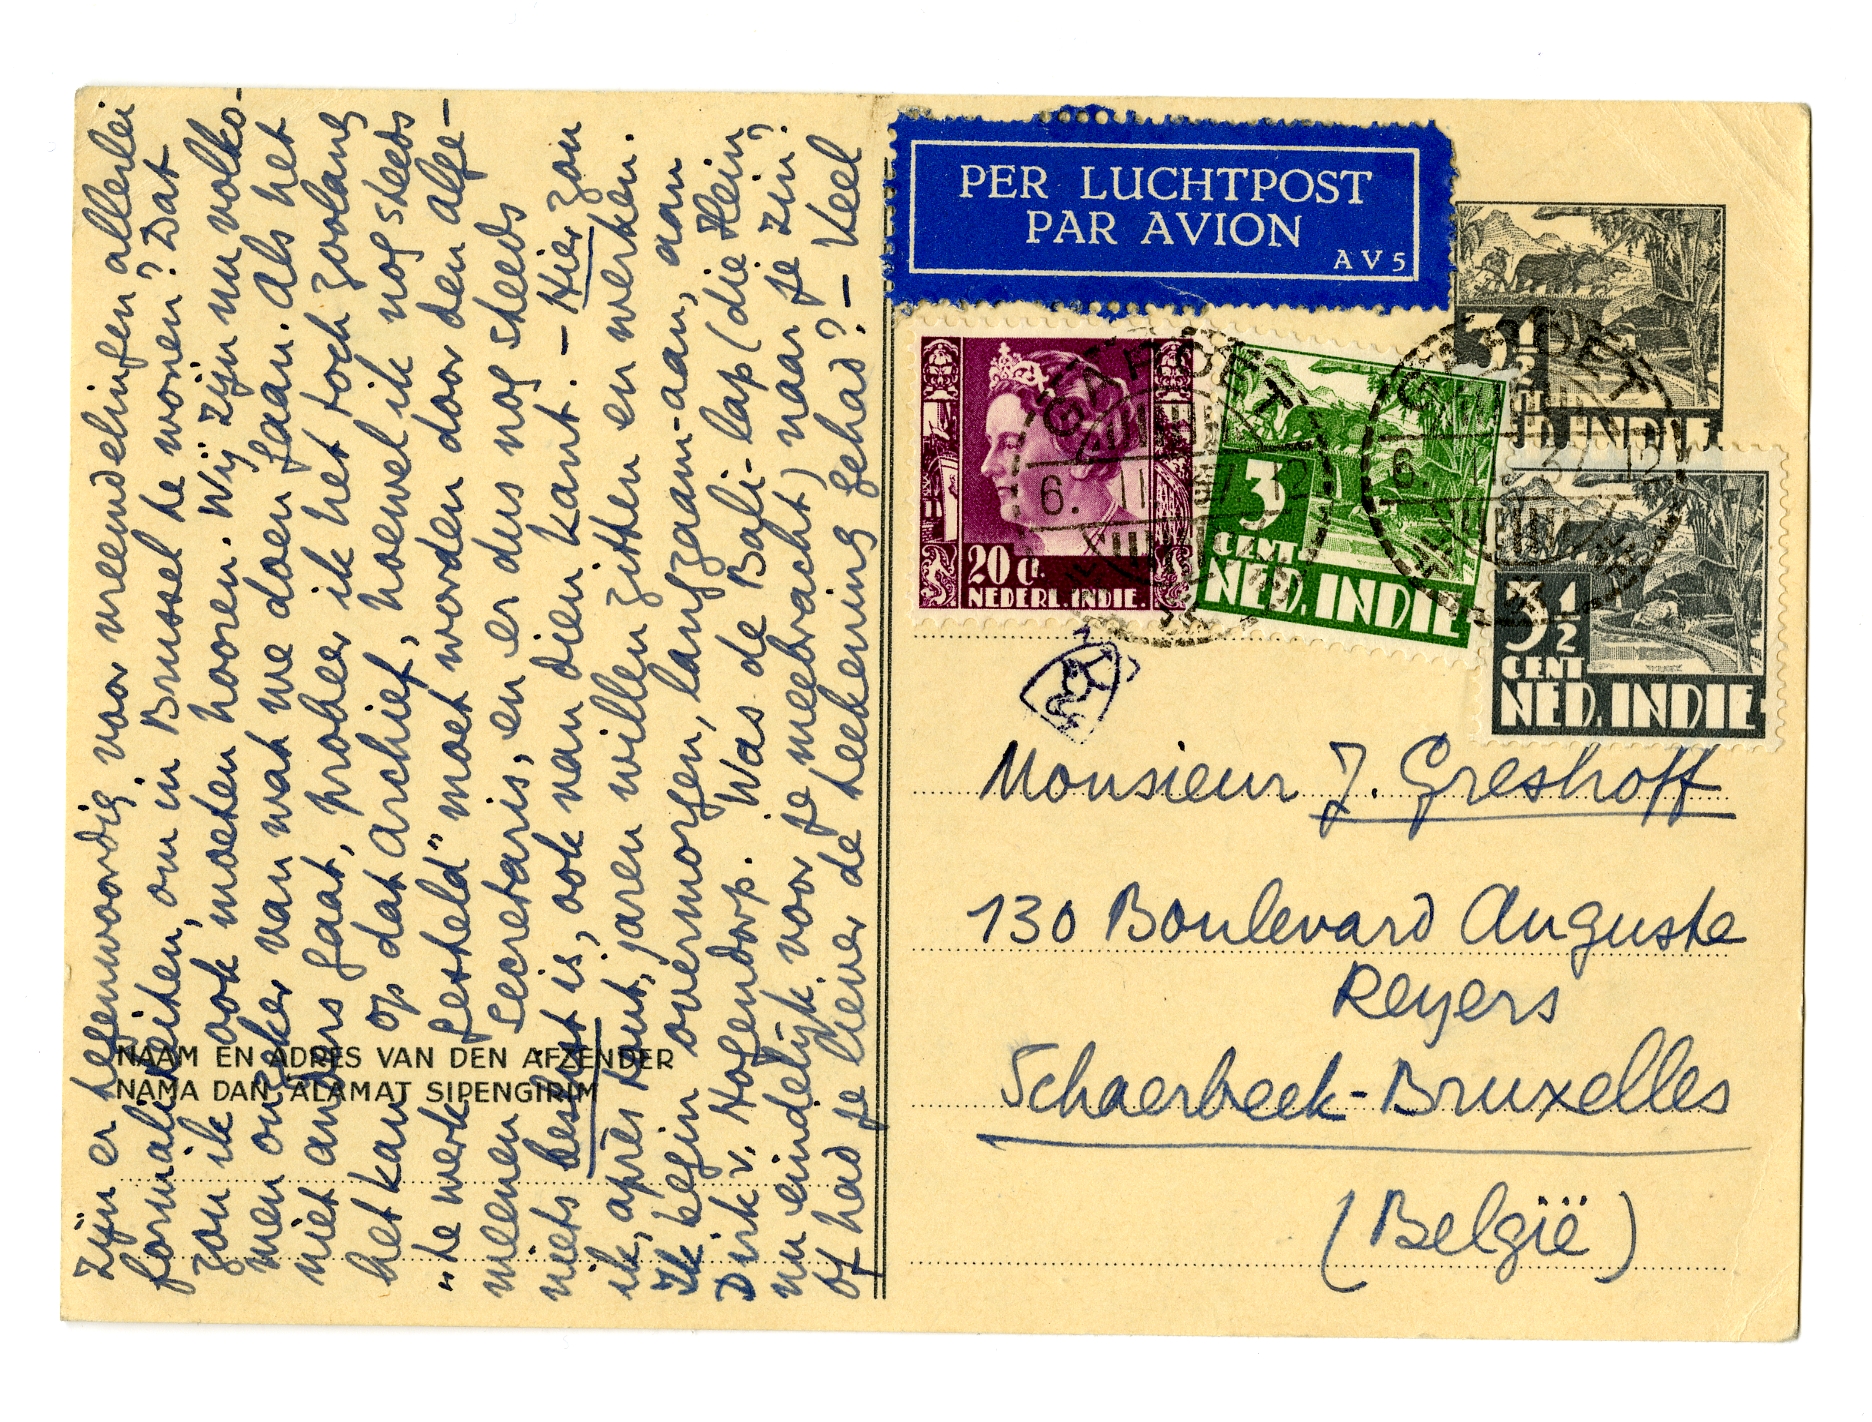 Zijn er tegenwoordig voor vreemdelingen allerlei
formaliteiten, om in Brussel te wonen? Dat
zou ik ook moeten hooren. Wij zijn nu volko-
men onzeker van wat we doen gaan. Als het
niet anders gaat, probeer ik het toch zoolang
het kan op dat archief, hoewel ik nog steeds
"te werk gesteld" moet worden door den alge-
meenen secretaris, en er dus nog steeds
niets beslist is, ook van dien kant. – Hier zou
ik, après tout, jaren willen zitten en werken.
Ik begin overmorgen, langzaam-aan, aan
Dirk v. Hogendorp. Was de Bali-lap (die Hein
nu eindelijk voor je meebracht) naar je zin?
Of had je liever de teekening gehad? – Veel
NAAM EN ADRES VAN DEN AFZENDER
NAMA DAN ALAMAT SIPENGIRIM
PER LUCHTPOST
PAR AVION
AV5
3½
IND. INDIE
20 ct.
NEDERL. INDIE.
3
CENT
NED. INDIE
3½
CENT
NED. INDIE
GAROET
6. 11
GAROET
6.
Monsieur J. Greshoff
130 Boulevard Auguste
Reyers
Schaerbeek-Bruxelles
(België)